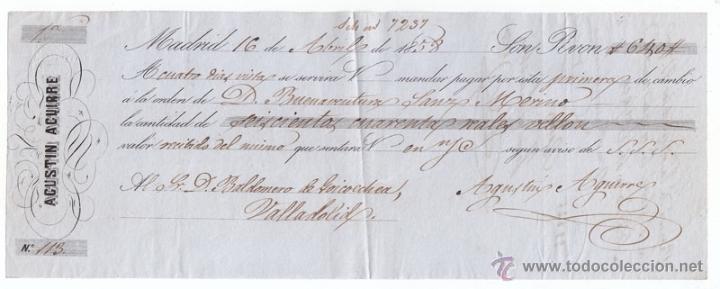 1ª
Sello nº 7237
Madrid 16 de Abril de 1858 Son Rvon #640#
A cuatro dias vista se servirá V mandar pagar por esta primera de cambio
á la orden de D. Buenaventura Sanz Merino
la cantidad de Seiscientos cuarenta reales vellon
valor recibido del mismo que sentará V en n/c segun aviso de S.S.S.
Al Sr. D. Baldomero de Goicoechea, Agustin Aguirre
Valladolid.
AGUSTIN AGUIRRE
Nº 113.
www.todocoleccion.net